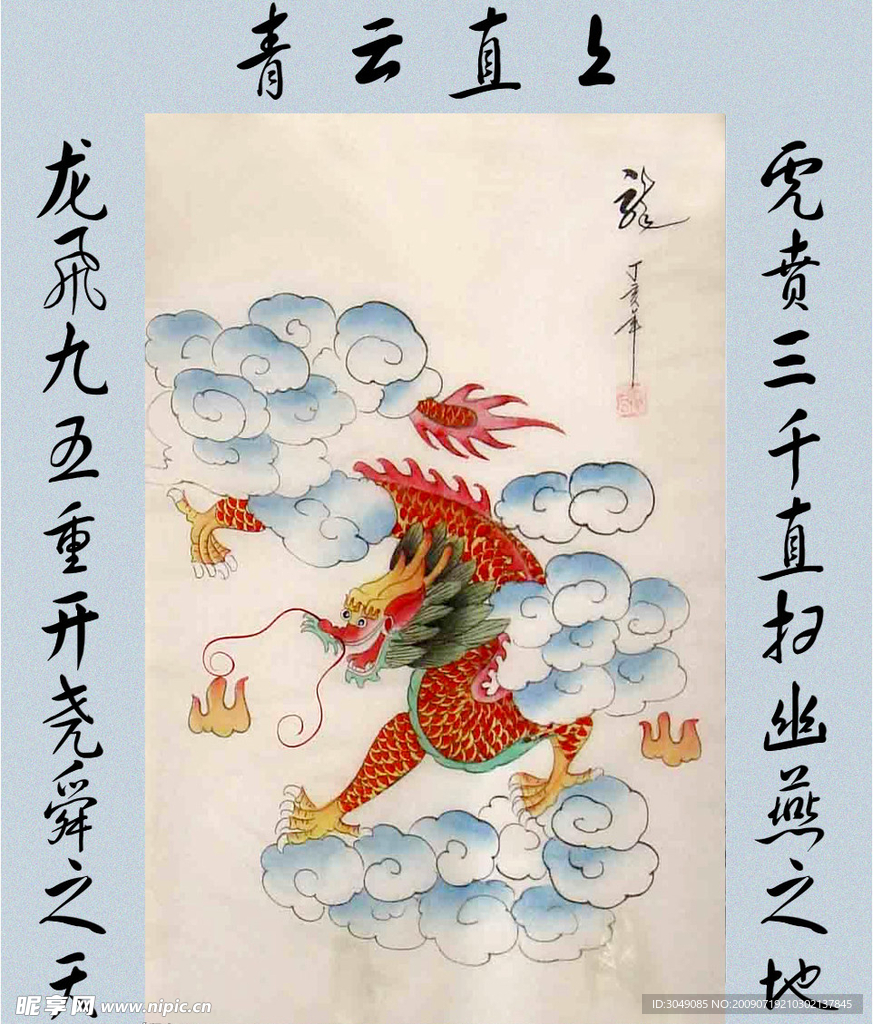 青云直上
虎贲三千直扫幽燕之地
龙飛九五重开尧舜之天
龍
丁亥年
昵享网 www.nipic.cn
ID:3049085 NO:20090719210302137845